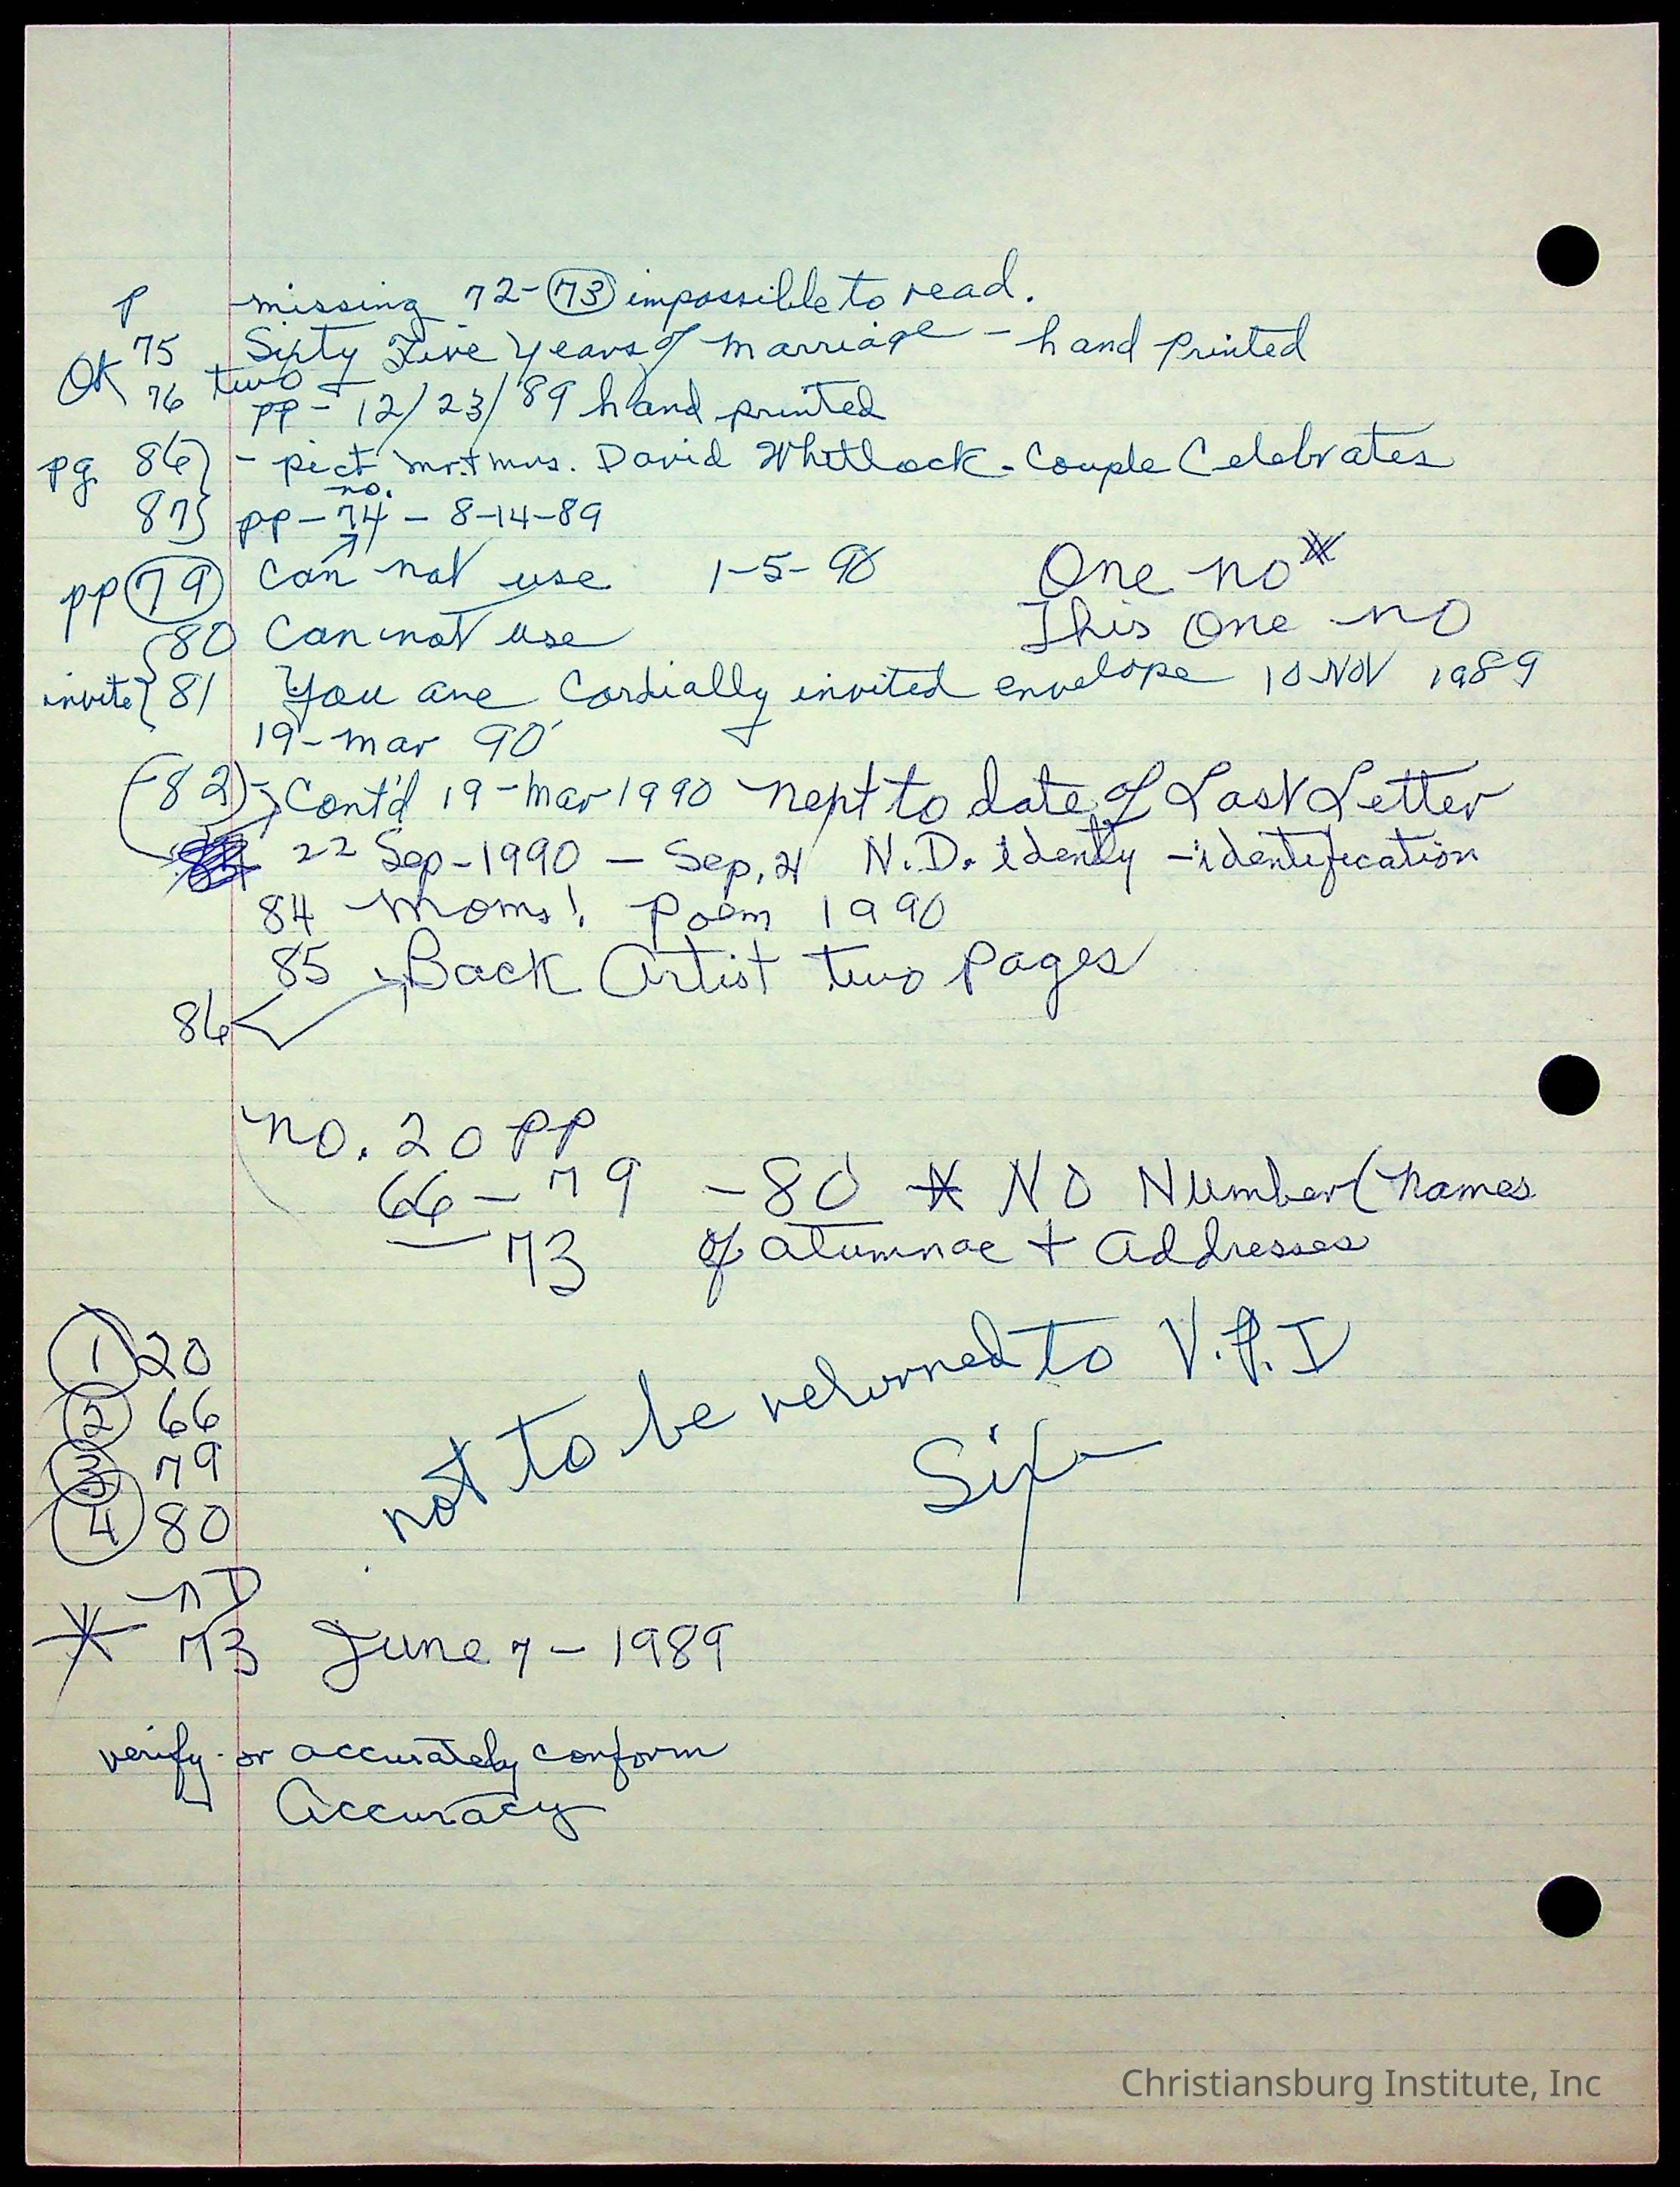 P missing 72-73 impossible to read.
75 Sixty Five Years of marriage - hand printed
OK 76 two pp - 12/23/89 hand printed
pg. 86} - pict mr. + mrs. David Whitlock - Couple Celebrates
87} pp - no. 74 - 8-14-89
pp 79 Can not use 1-5-90 One no*
{80 Can not use This one no
invite{ 81 You are Cordially invited envelope 10 NOV 1989
19-mar 90
(82)- Cont'd 19-mar 1990 next to date of Last Letter
22 Sep-1990 - Sep, 21 N.D. idently - identification
84 Moms! Poem 1990
85 Back Artist two Pages
86
no. 20 pp
66 - 79 - 80 * NO Number (names
73 of alumnae + addresses
1 20
2 66
3 79
4 80
not to be returned to V.P.I
Six
nD
* 73 June 7 - 1989
verify - or accurately conform
Accuracy
Christiansburg Institute, Inc